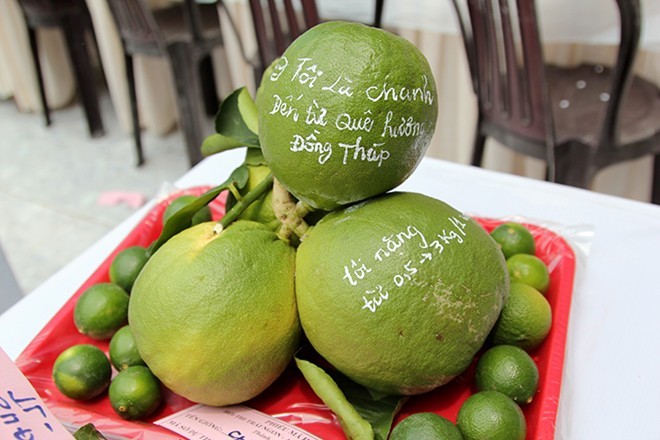 Tôi Là chanh
Đến từ Quê hương
Đồng Tháp
tôi nặng
từ 0,5 → 3 Kg/1
TÊN GIỐNG: